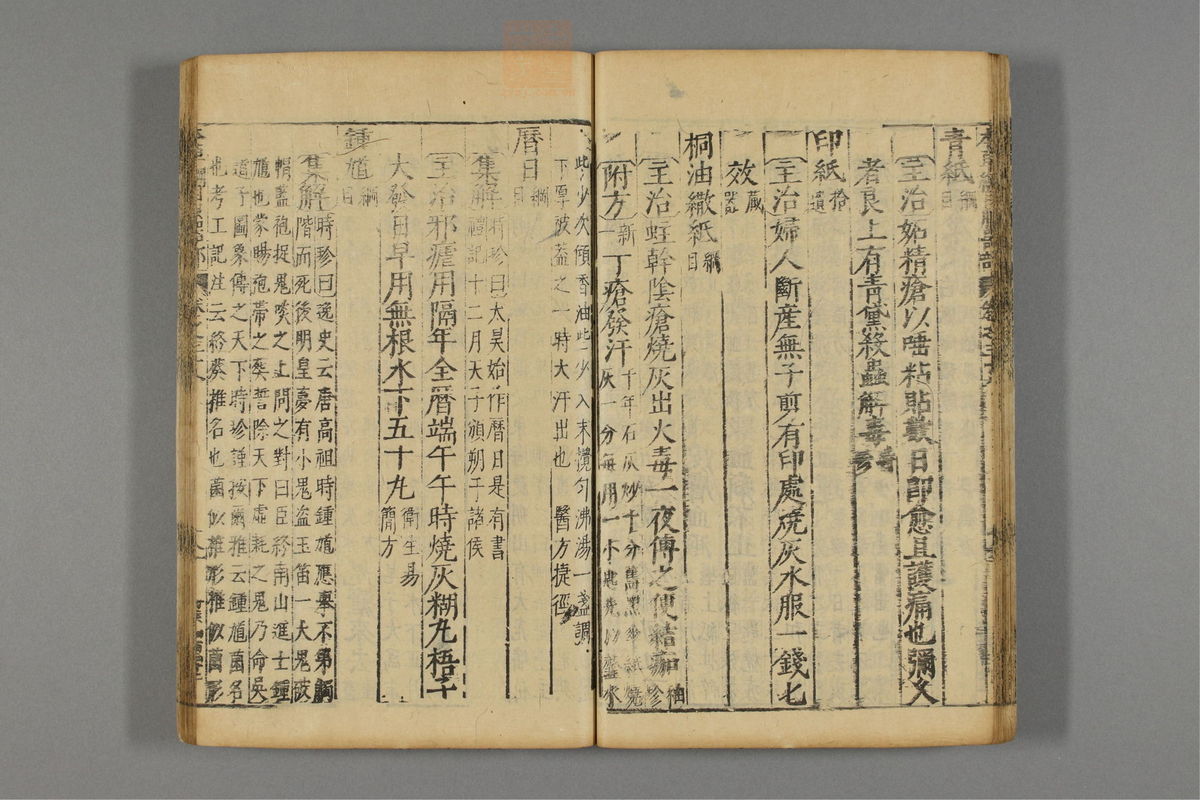 本草綱目服器部 卷之三十八
青紙綱目
主治妬精瘡以唾粘貼數日即愈且護痛也彌久
者良上有青黛殺蟲解毒時珍
印紙拾遺
主治婦人斷産無子剪有印處燒灰水服一錢匕
效藏器
桐油繖紙綱目
主治蛀幹陰瘡燒灰出火毒一夜傅之便結痂時珍
附方新一丁瘡發汗千年石灰炒十分舊黑傘紙燒
灰一分每用一小匙先以虀水
些少次傾香油些少入末攪勻沸湯一盞調
下厚被蓋之一時大汗出也 醫方捷徑
曆日綱目
集解時珍曰太昊始作曆日是有書
禮記十二月天子頒朔于諸侯
主治邪瘧用隔年全曆端午午時燒灰糊丸梧子
大發日早用無根水下五十丸衛生易
簡方
鍾馗綱目
集解時珍曰逸史云唐高祖時鍾馗應舉不第觸
階而死後明皇夢有小鬼盜玉笛一大鬼破
帽藍袍捉鬼啖之上問之對曰臣終南山進士鍾
馗也蒙賜袍帶之葬誓除天下虛耗之鬼乃命吳
道子圖象傳之天下時珍謹按爾雅云鍾馗菌名
也考工記注云終葵椎名也菌似椎形椎似菌形